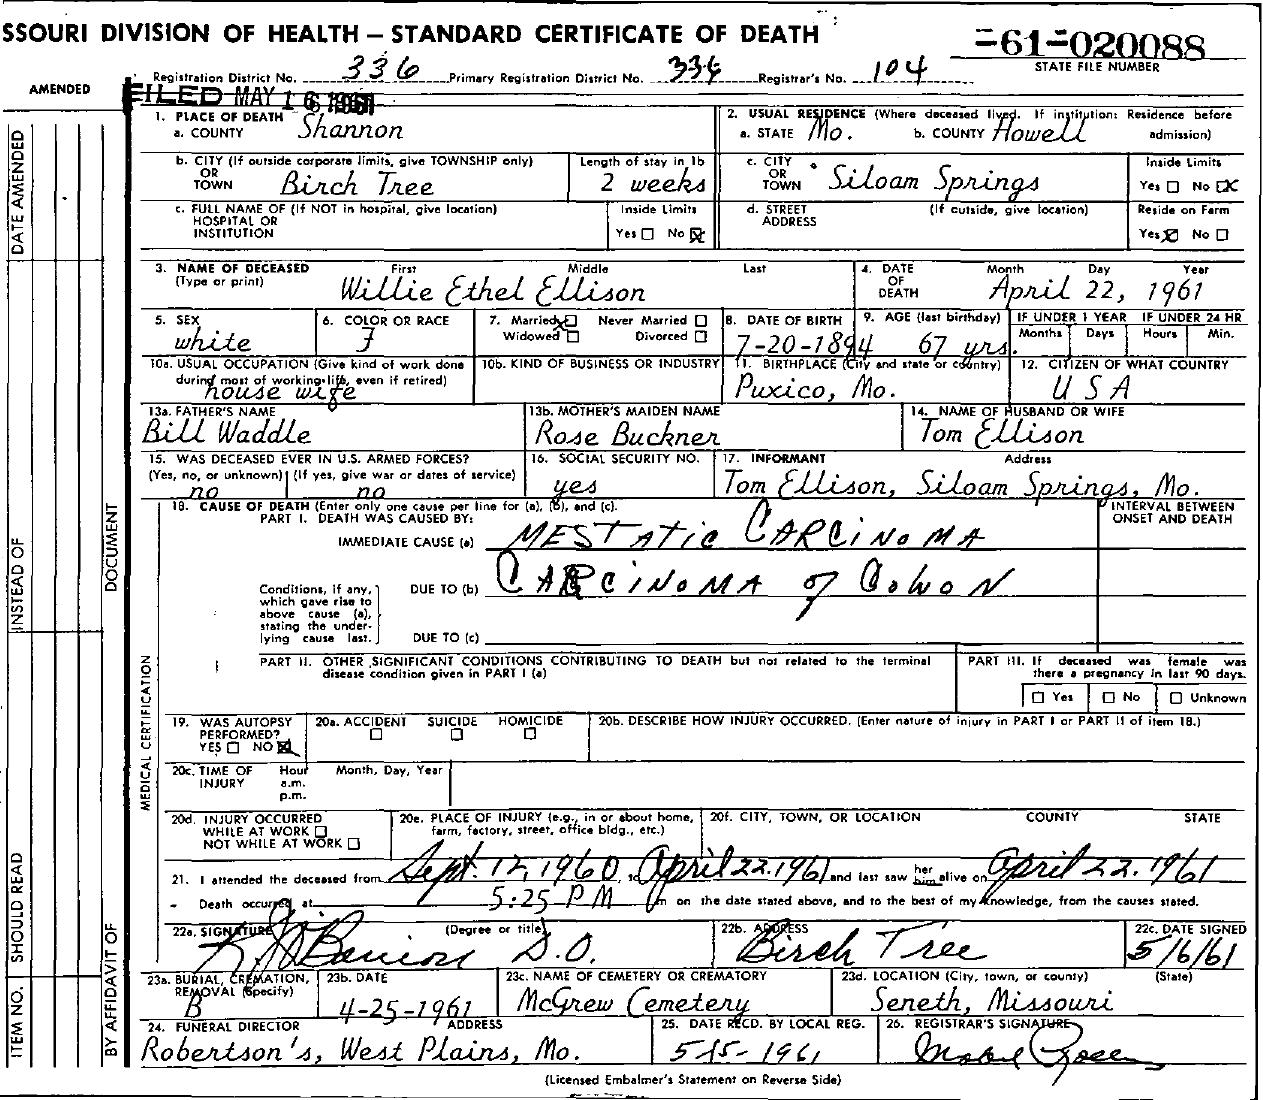 SSOURI DIVISION OF HEALTH — STANDARD CERTIFICATE OF DEATH
=61=020088
STATE FILE NUMBER
Registration District No. 336 Primary Registration District No. 336 Registrar's No. 104
AMENDED
FILED MAY 16 1961
1. PLACE OF DEATH
a. COUNTY Shannon
2. USUAL RESIDENCE (Where deceased lived. If institution: Residence before
a. STATE Mo. b. COUNTY Howell admission)
b. CITY (If outside corporate limits, give TOWNSHIP only)
OR
TOWN Birch Tree
Length of stay in 1b
2 weeks
c. CITY
OR
TOWN Siloam Springs
Inside Limits
Yes No X
c. FULL NAME OF (If NOT in hospital, give location)
HOSPITAL OR
INSTITUTION
Inside Limits
Yes No X
d. STREET (If outside, give location)
ADDRESS
Reside on Farm
Yes X No
3. NAME OF DECEASED First Middle Last
(Type or print)
Willie Ethel Ellison
4. DATE Month Day Year
OF
DEATH April 22, 1961
5. SEX
white
6. COLOR OR RACE
F
7. Married X Never Married
Widowed Divorced
8. DATE OF BIRTH
7-20-1894
9. AGE (last birthday)
67 yrs.
IF UNDER 1 YEAR IF UNDER 24 HR
Months Days Hours Min.
10a. USUAL OCCUPATION (Give kind of work done
during most of working life, even if retired)
house wife
10b. KIND OF BUSINESS OR INDUSTRY
11. BIRTHPLACE (City and state or country)
Puxico, Mo.
12. CITIZEN OF WHAT COUNTRY
USA
13a. FATHER'S NAME
Bill Waddle
13b. MOTHER'S MAIDEN NAME
Rose Buckner
14. NAME OF HUSBAND OR WIFE
Tom Ellison
15. WAS DECEASED EVER IN U.S. ARMED FORCES?
(Yes, no, or unknown) (If yes, give war or dates of service)
no no
16. SOCIAL SECURITY NO.
yes
17. INFORMANT Address
Tom Ellison, Siloam Springs, Mo.
18. CAUSE OF DEATH (Enter only one cause per line for (a), (b), and (c).
PART I. DEATH WAS CAUSED BY:
INTERVAL BETWEEN
ONSET AND DEATH
IMMEDIATE CAUSE (a) MESTATIC CARCINOMA
Conditions, if any,
which gave rise to
above cause (a),
stating the under-
lying cause last.
DUE TO (b) CARCINOMA of COLON
DUE TO (c)
PART II. OTHER SIGNIFICANT CONDITIONS CONTRIBUTING TO DEATH but not related to the terminal
disease condition given in PART I (a)
PART III. If deceased was female was
there a pregnancy in last 90 days.
Yes No Unknown
19. WAS AUTOPSY
PERFORMED?
YES NO X
20a. ACCIDENT SUICIDE HOMICIDE
20b. DESCRIBE HOW INJURY OCCURRED. (Enter nature of injury in PART I or PART II of item 18.)
20c. TIME OF Hour Month, Day, Year
INJURY a.m.
p.m.
20d. INJURY OCCURRED
WHILE AT WORK
NOT WHILE AT WORK
20e. PLACE OF INJURY (e.g., in or about home,
farm, factory, street, office bldg., etc.)
20f. CITY, TOWN, OR LOCATION COUNTY STATE
21. I attended the deceased from Sept. 12, 1960, April 22. 1961 and last saw her him alive on April 22. 1961
Death occurred at 5:25 PM m on the date stated above, and to the best of my knowledge, from the causes stated.
22a. SIGNATURE (Degree or title)
D.O.
22b. ADDRESS
Birch Tree
22c. DATE SIGNED
5/6/61
23a. BURIAL, CREMATION,
REMOVAL (Specify)
B
23b. DATE
4-25-1961
23c. NAME OF CEMETERY OR CREMATORY
McGrew Cemetery
23d. LOCATION (City, town, or county) (State)
Seneth, Missouri
24. FUNERAL DIRECTOR ADDRESS
Robertson's, West Plains, Mo.
25. DATE RECD. BY LOCAL REG.
5-15-1961
26. REGISTRAR'S SIGNATURE
(Licensed Embalmer's Statement on Reverse Side)
DATE AMENDED
INSTEAD OF
DOCUMENT
SHOULD READ
ITEM NO.
BY AFFIDAVIT OF
MEDICAL CERTIFICATION